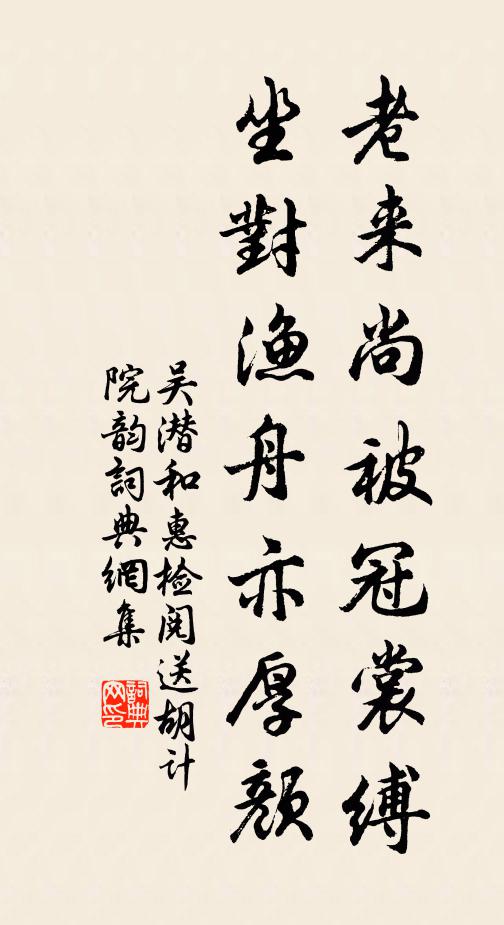 老来尚被冠裳缚
坐對漁舟亦厚顔
吴潜和惠检阅送胡计
院韵詞典網集
詞典
网印